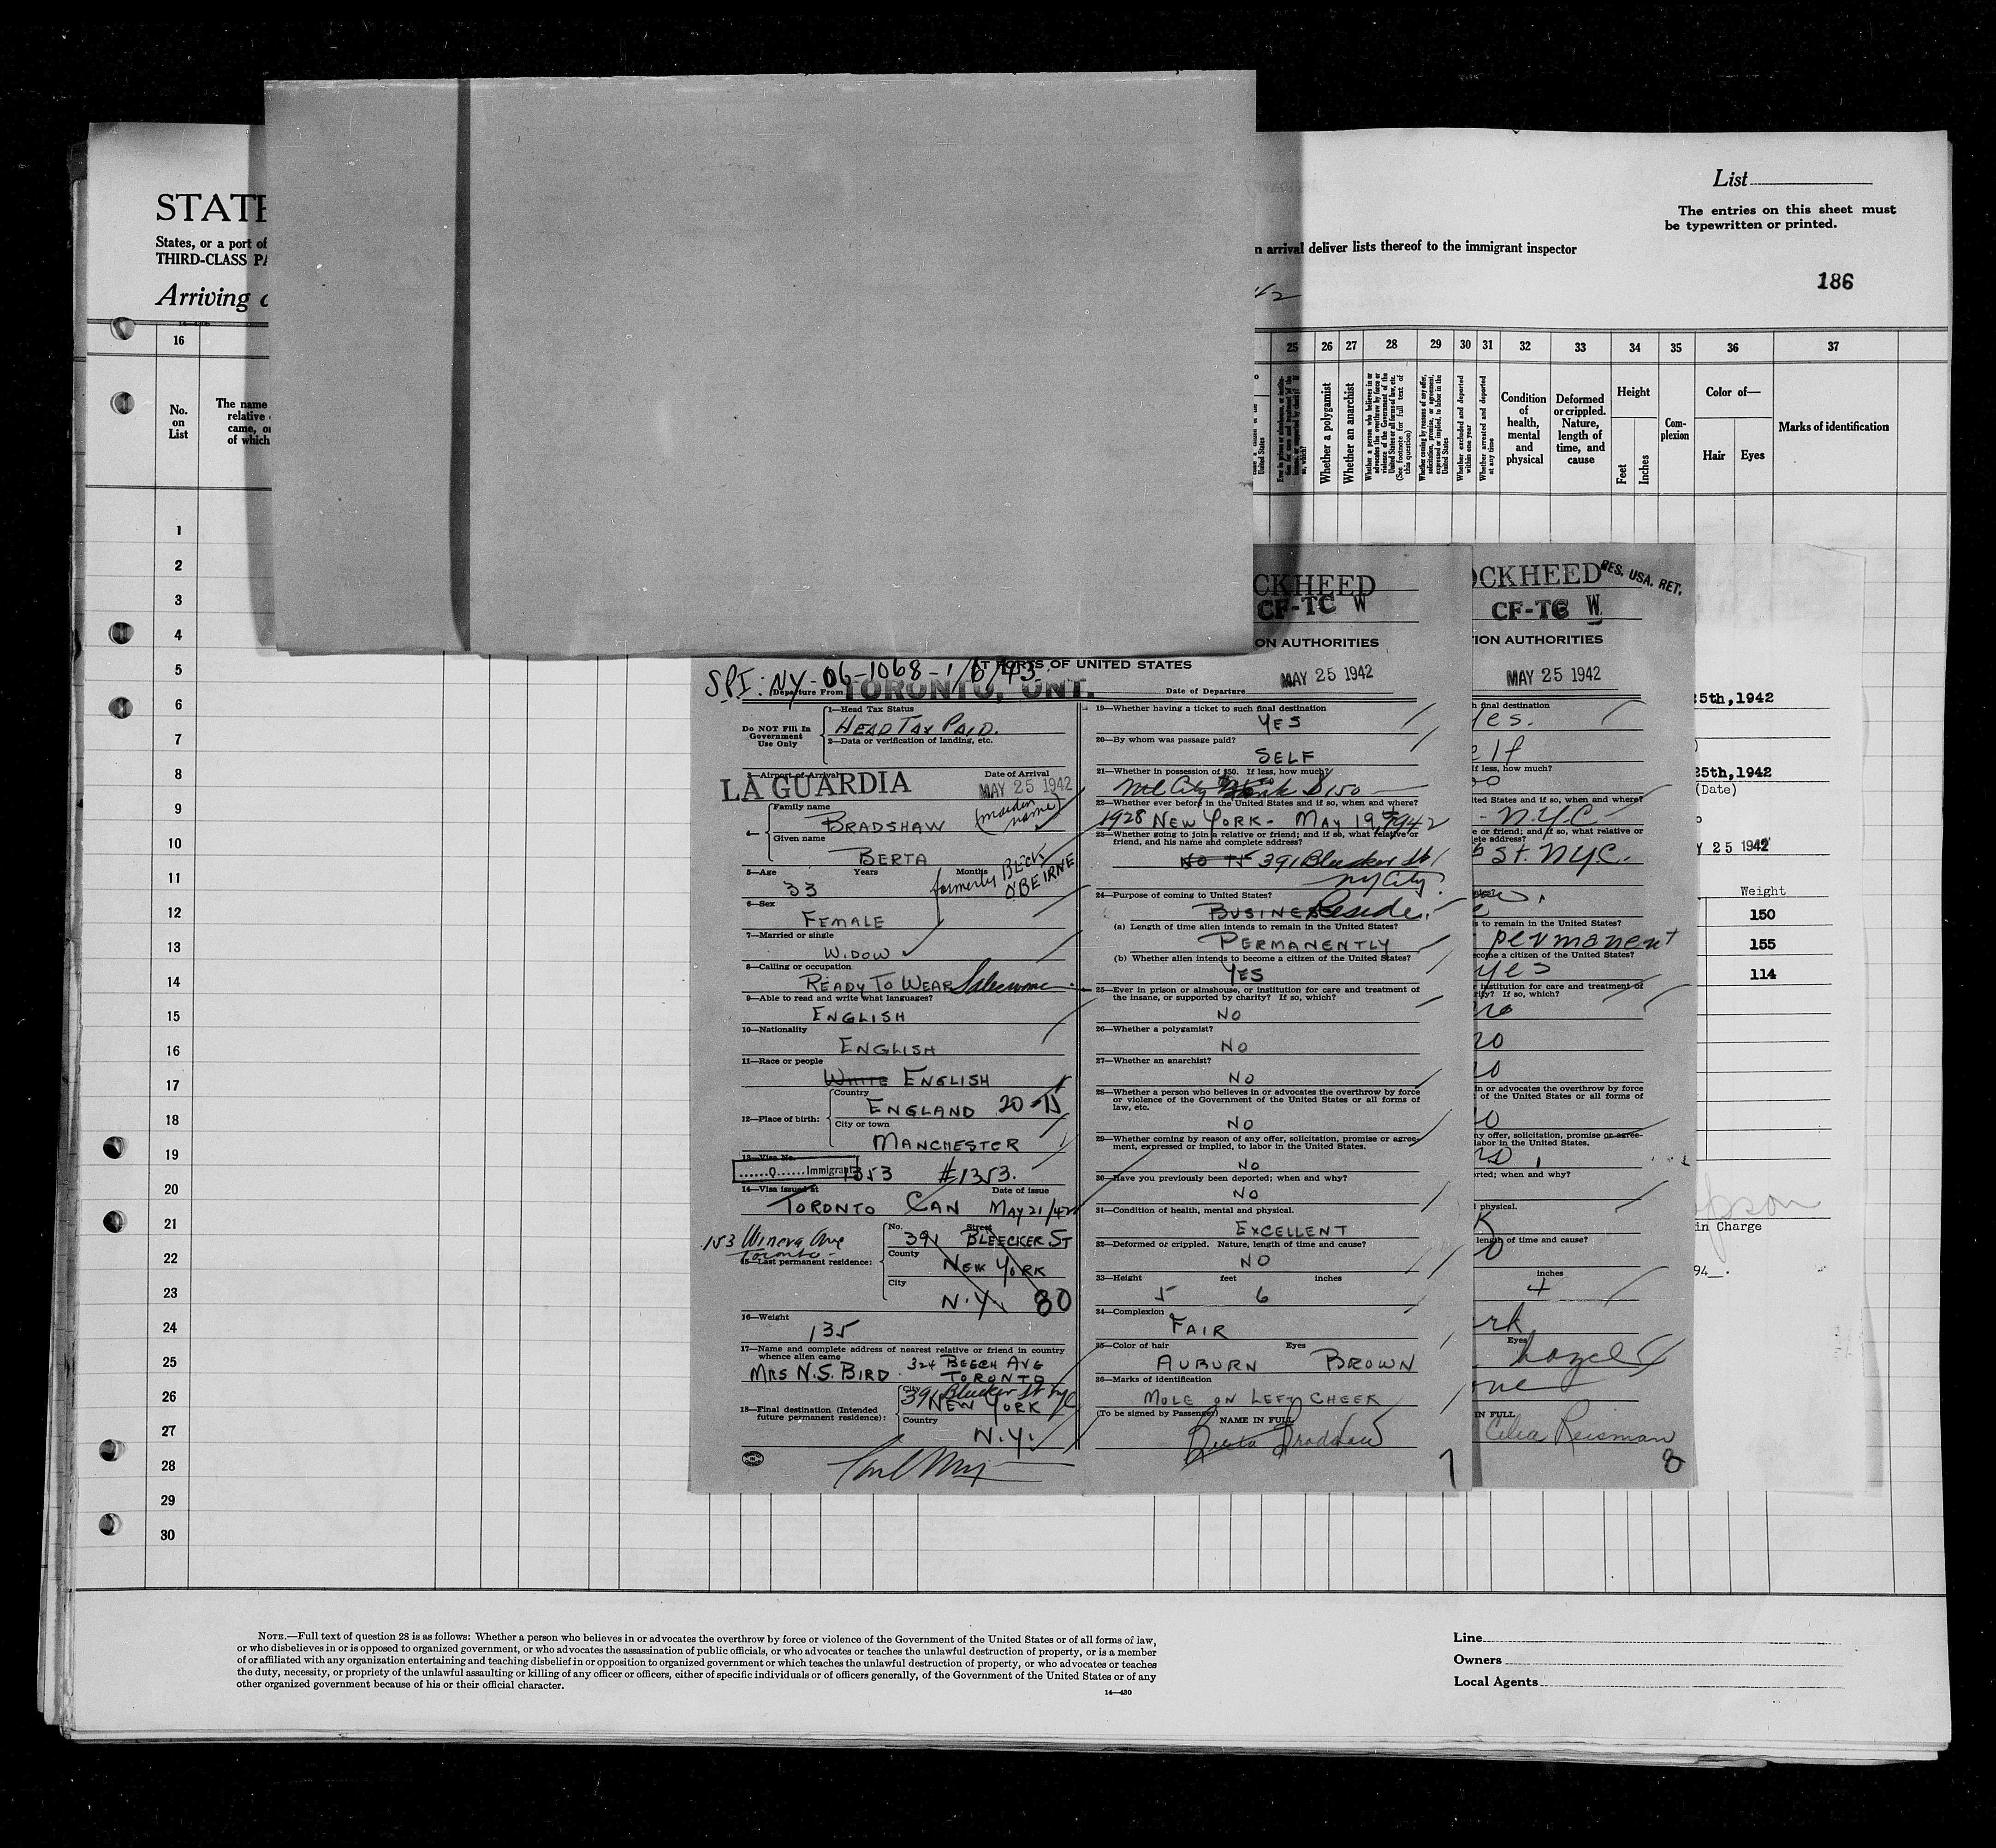 STATE
States, or a port of
THIRD-CLASS PA
Arriving a
List
The entries on this sheet must
be typewritten or printed.
n arrival deliver lists thereof to the immigrant inspector
186
16
No.
on
List
The name
relative
came, o
of which
25
26
27
28
29
30
31
32
33
34
35
36
37
Whether a polygamist
Whether an anarchist
Whether a person who believes in or
advocates the overthrow by force or
violence of the Government of the
United States or all forms of law, etc.
(See footnote for full text of
this question)
Whether coming by reasons of any offer,
solicitation, promise, or agreement,
expressed or implied, to labor in the
United States
Whether excluded and deported
within one year
Whether arrested and deported
at any time
Condition
of
health,
mental
and
physical
Deformed
or crippled.
Nature,
length of
time, and
cause
Height
Feet
Inches
Com-
plexion
Color of—
Hair
Eyes
Marks of identification
1
2
3
4
5
6
7
8
9
10
11
12
13
14
15
16
17
18
19
20
21
22
23
24
25
26
27
28
29
30
CKHEED
CF-TC W
ON AUTHORITIES
AT PORTS OF UNITED STATES
SPI: NY-06-1068-1/6/43
Departure From TORONTO, ONT.
Date of Departure MAY 25 1942
Do NOT Fill In
Government
Use Only
1—Head Tax Status
HEAD TAX PAID.
2—Data or verification of landing, etc.
3—Airport of Arrival
LA GUARDIA
Date of Arrival
MAY 25 1942
4—
Family name
BRADSHAW (maiden name)
Given name
BERTA
formerly BLICK
O'BEIRNE
5—Age Years Months
33
6—Sex
FEMALE
7—Married or single
WIDOW
8—Calling or occupation
READY TO WEAR
9—Able to read and write what languages?
ENGLISH
10—Nationality
ENGLISH
11—Race or people
WHITE ENGLISH
12—Place of birth:
Country
ENGLAND 20
City or town
MANCHESTER
13—Visa No.
Immigrant 1353 #1353.
14—Visa issued at Date of issue
TORONTO CAN MAY 21/42
153 Wineva Ave
Toronto
15—Last permanent residence:
No. Street
391 BLEECKER ST
County
NEW YORK
City
N.Y. 80
16—Weight
135
17—Name and complete address of nearest relative or friend in country
whence alien came
MRS N.S. BIRD. 324 BEECH AVE
TORONTO
18—Final destination (Intended
future permanent residence):
City
391 Bleecker St NYC
NEW YORK
Country
N.Y.
19—Whether having a ticket to such final destination
YES
20—By whom was passage paid?
SELF
21—Whether in possession of $50. If less, how much?
$150
22—Whether ever before in the United States and if so, when and where?
1928 NEW YORK - MAY 19 1942
23—Whether going to join a relative or friend; and if so, what relative or
friend, and his name and complete address?
NO 391 Bleecker St
NY City
24—Purpose of coming to United States?
BUSINESS Reside
(a) Length of time alien intends to remain in the United States?
PERMANENTLY
(b) Whether alien intends to become a citizen of the United States?
YES
25—Ever in prison or almshouse, or institution for care and treatment of
the insane, or supported by charity? If so, which?
NO
26—Whether a polygamist?
NO
27—Whether an anarchist?
NO
28—Whether a person who believes in or advocates the overthrow by force
or violence of the Government of the United States or all forms of
law, etc.
NO
29—Whether coming by reason of any offer, solicitation, promise or agree-
ment, expressed or implied, to labor in the United States.
NO
30—Have you previously been deported; when and why?
NO
31—Condition of health, mental and physical.
EXCELLENT
32—Deformed or crippled. Nature, length of time and cause?
NO
33—Height feet inches
5 6
34—Complexion
FAIR
35—Color of hair Eyes
AUBURN BROWN
36—Marks of identification
MOLE ON LEFT CHEEK
(To be signed by Passenger)
NAME IN FULL
Berta Bradshaw
7
OCKHEED
RES. USA. RET.
CF-TC W
ION AUTHORITIES
MAY 25 1942
h final destination
Yes.
elf
If less, how much?
ited States and if so, when and where?
- N.Y.C.
e or friend; and if so, what relative or
lete address?
st. N.Y.C.
s to remain in the United States?
permanent
come a citizen of the United States?
yes
r institution for care and treatment of
rity? If so, which?
no
no
no
in or advocates the overthrow by force
t of the United States or all forms of
no
ny offer, solicitation, promise or agree-
labor in the United States.
no
rted; when and why?
l physical.
length of time and cause?
inches
4
rk
Eyes
hazel
one
IN FULL
Celia Reisman
8
25th,1942
25th,1942
(Date)
Y 25 1942
Weight
150
155
114
in Charge
94
NOTE.—Full text of question 28 is as follows: Whether a person who believes in or advocates the overthrow by force or violence of the Government of the United States or of all forms of law,
or who disbelieves in or is opposed to organized government, or who advocates the assassination of public officials, or who advocates or teaches the unlawful destruction of property, or is a member
of or affiliated with any organization entertaining and teaching disbelief in or opposition to organized government or which teaches the unlawful destruction of property, or who advocates or teaches
the duty, necessity, or propriety of the unlawful assaulting or killing of any officer or officers, either of specific individuals or of officers generally, of the Government of the United States or of any
other organized government because of his or their official character.
14—430
Line
Owners
Local Agents